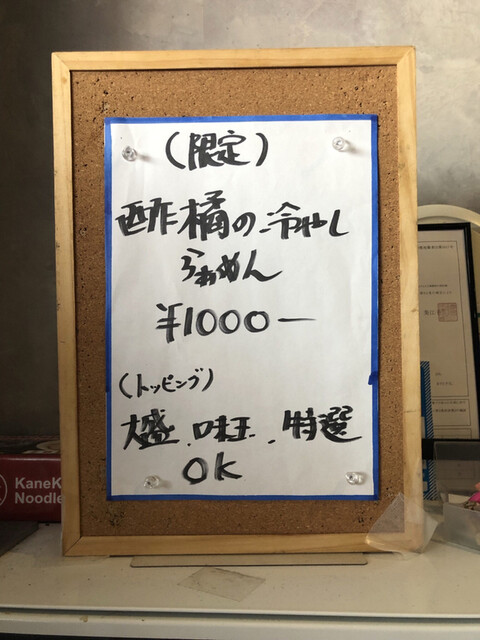 （限定）
酢橘の冷やし
らぁめん
¥1000ー
（トッピング）
大盛、味玉、特選
OK
KaneK
Noodle